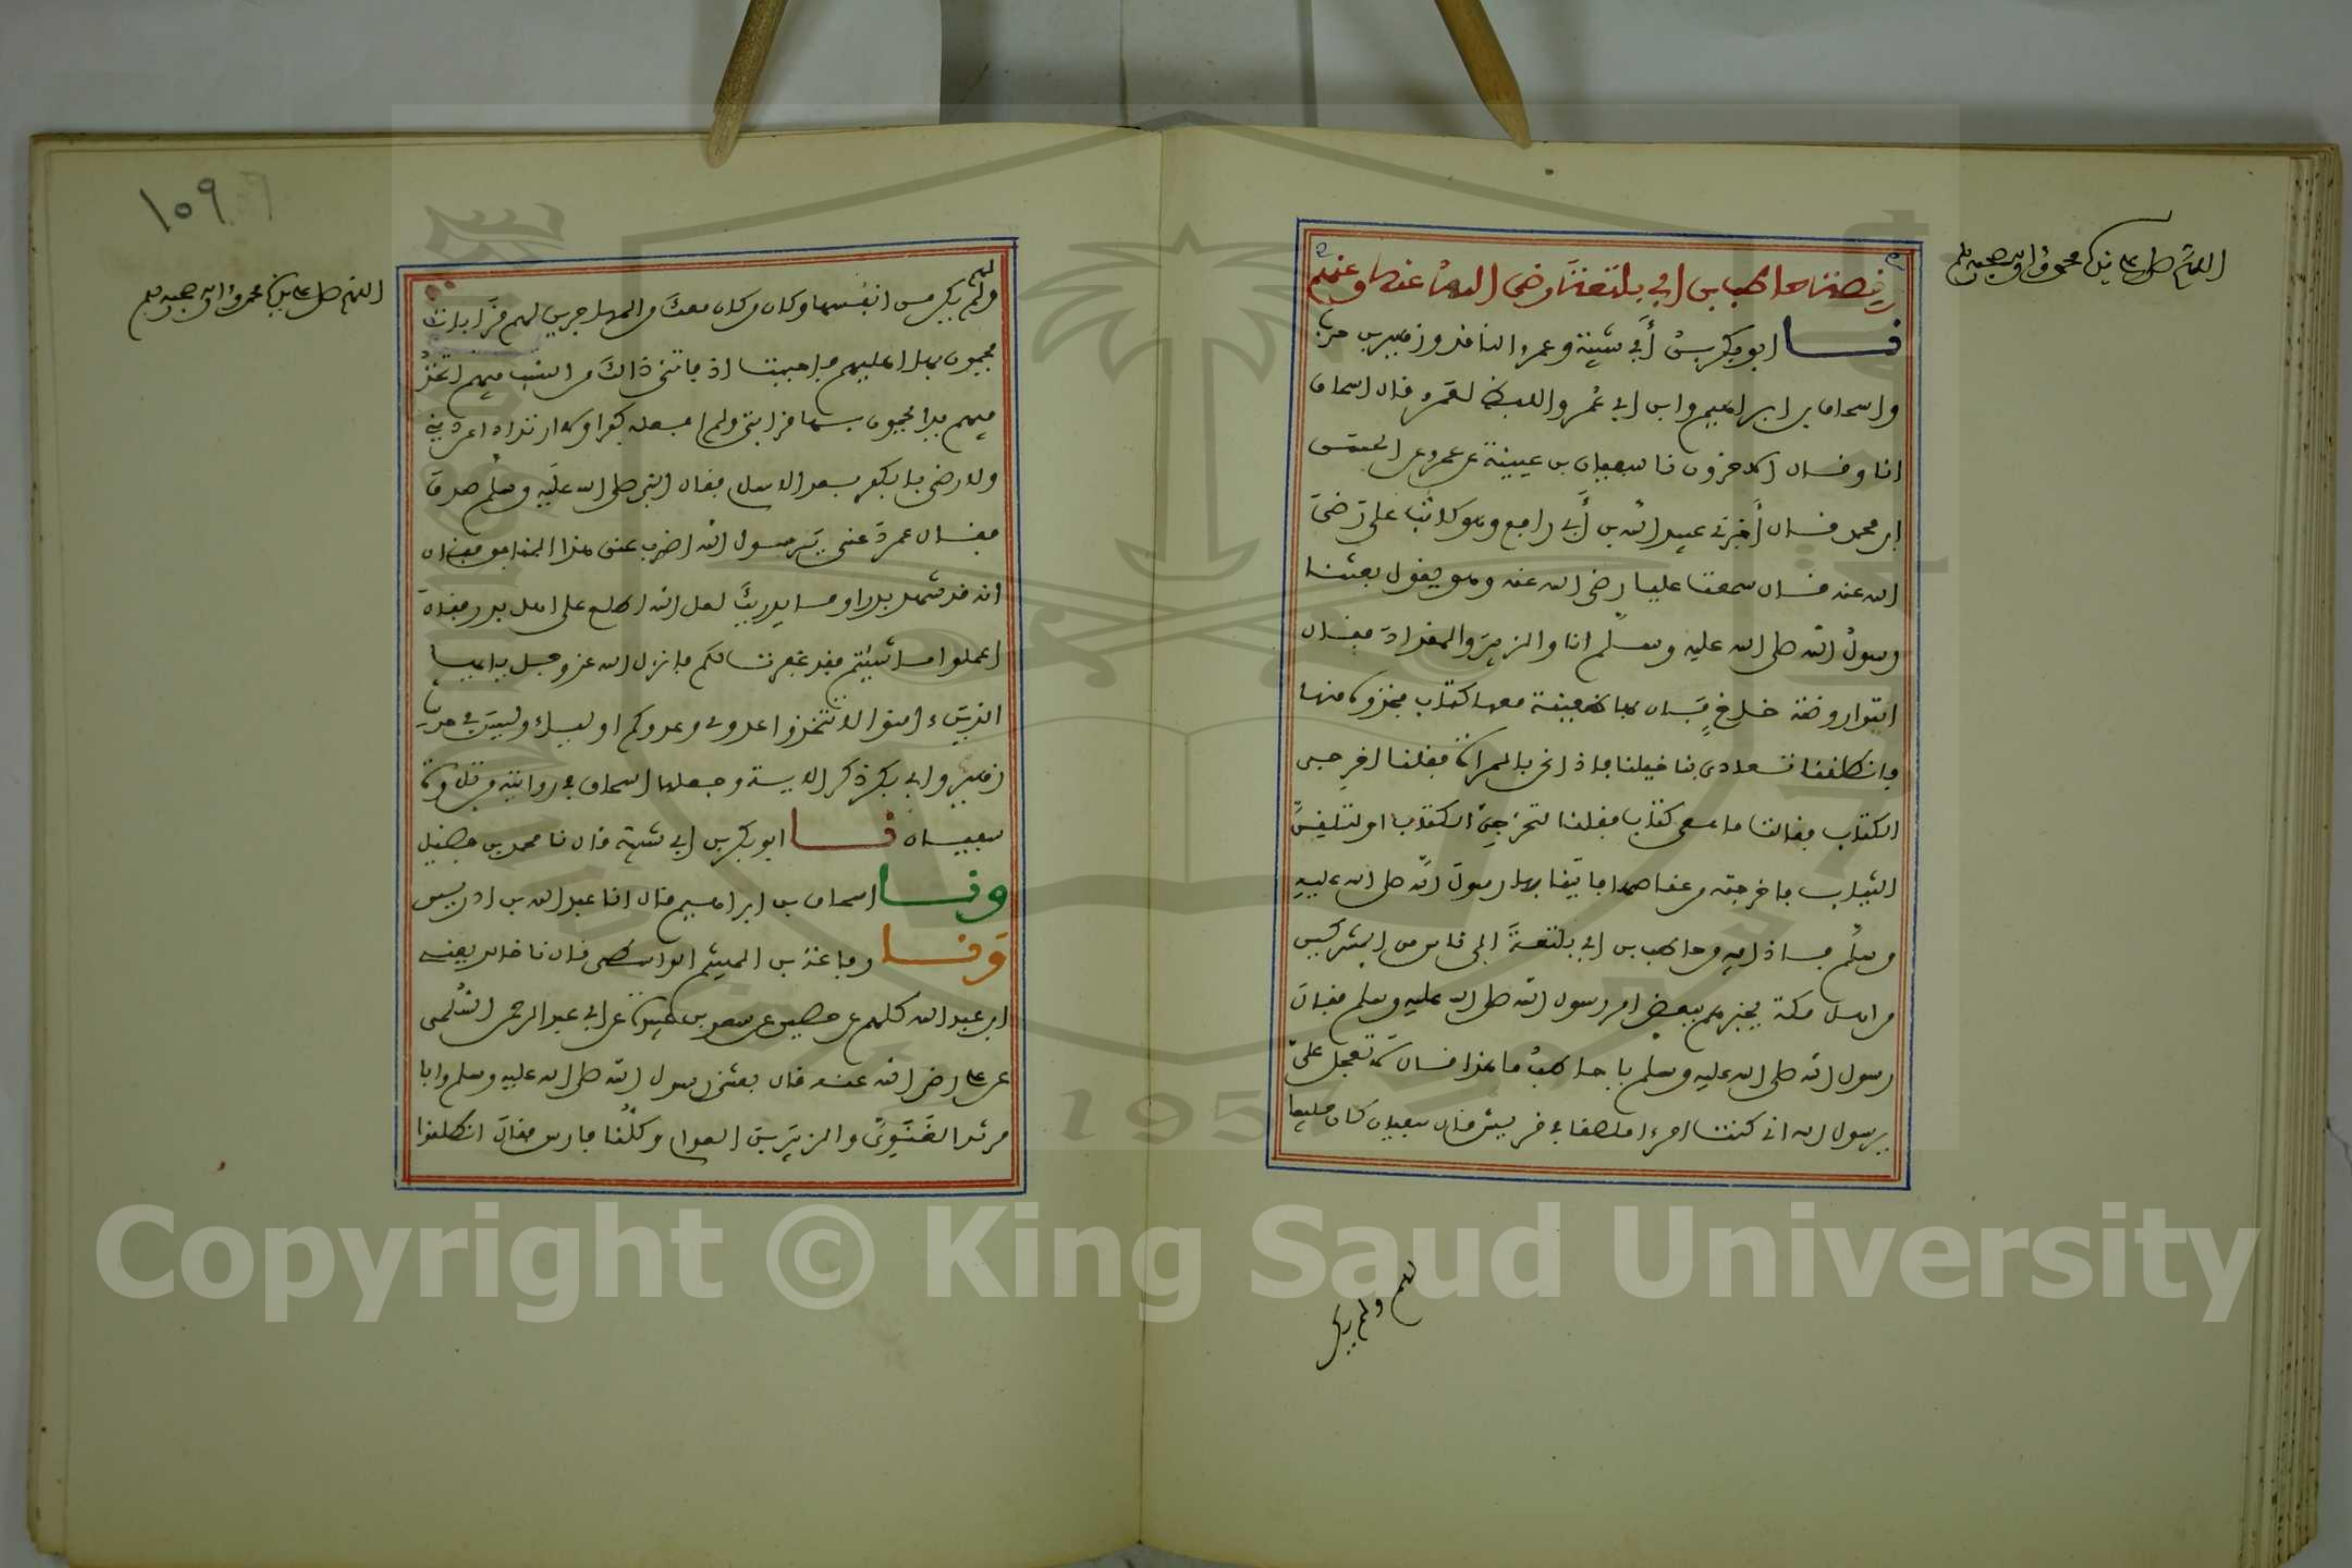 اللهم صل على سيدنا محمد وءاله وصحبه وسلم
قصة حاطب بن ابي بلتعة رضي الله عنه وعنهم
نا ابو بكر بن أبي شيبة وعمرو الناقد وزهير بن حرب
واسحاق بن ابراهيم وابن ابي عمر واللفظ لعمرو قال اسحاق
انا وقال الاخرون نا سفيان بن عيينة عن عمرو عن الحسن
ابن محمد قال أخبرني عبيد الله بن أبي رافع وهو كاتب علي رضي
الله عنه قال سمعت عليا رضي الله عنه وهو يقول بعثنا
رسول الله صلى الله عليه وسلم انا والزبير والمقداد فقال
ايتوا روضة خاخ فإن بها ظعينة معها كتاب فخذوه منها
فانطلقنا تعادى بنا خيلنا فاذا نحن بالمرأة فقلنا اخرجي
الكتاب فقالت ما معي كتاب فقلنا لتخرجن الكتاب او لتلقين
الثياب فاخرجته من عقاصها فاتينا بها رسول الله صلى الله عليه
وسلم فاذا فيه من حاطب بن ابي بلتعة الى ناس من المشركين
من اهل مكة يخبرهم ببعض امر رسول الله صلى الله عليه وسلم فقال
رسول الله صلى الله عليه وسلم يا حاطب ما هذا قال لا تعجل علي
يرسول الله اني كنت امرءا ملصقا في قريش قال سفيان كان حليفا
لهم ولم يكن
١٥٩
اللهم صل على سيدنا محمد وءاله وصحبه وسلم
لهم
ولم يكن من انفسها وكان من كان معك من المهاجرين لهم قرابات
يحمون بها اهليهم فاحببت اذ فاتني ذالك من النسب فيهم اتخذ
فيهم يدا يحمون بها قرابتي ولم افعله كفرا ولا ارتدادا عن ديني
ولا رضى بالكفر بعد الاسلام فقال النبي صلى الله عليه وسلم صدق
فقال عمر دعني يرسول الله اضرب عنق هذا المنافق فقال
انه قد شهد بدرا وما يدريك لعل الله اطلع على اهل بدر فقال
اعملوا ما شيتم فقد غفرت لكم فانزل الله عز وجل يا ايها
الذين ءامنوا لا تتخذوا عدوي وعدوكم اولياء وليس في حديث
زهير وابي بكر ذكر الاية وجعلها اسحاق في روايته من تلاوة
سفيان نا ابو بكر بن ابي شيبة قال نا محمد بن فضيل
ونا اسحاق بن ابراهيم قال انا عبد الله بن ادريس
ونا رفاعة بن الهيثم الواسطي قال نا خالد يعني
ابن عبد الله كلهم عن حصين عن سعد بن عبيدة عن ابي عبد الرحمن السلمي
عن علي رضي الله عنه قال بعثني رسول الله صلى الله عليه وسلم وابا
مرثد الغنوي والزبير بن العوام وكلنا فارس فقال انطلقوا
Copyright © King Saud University
1957